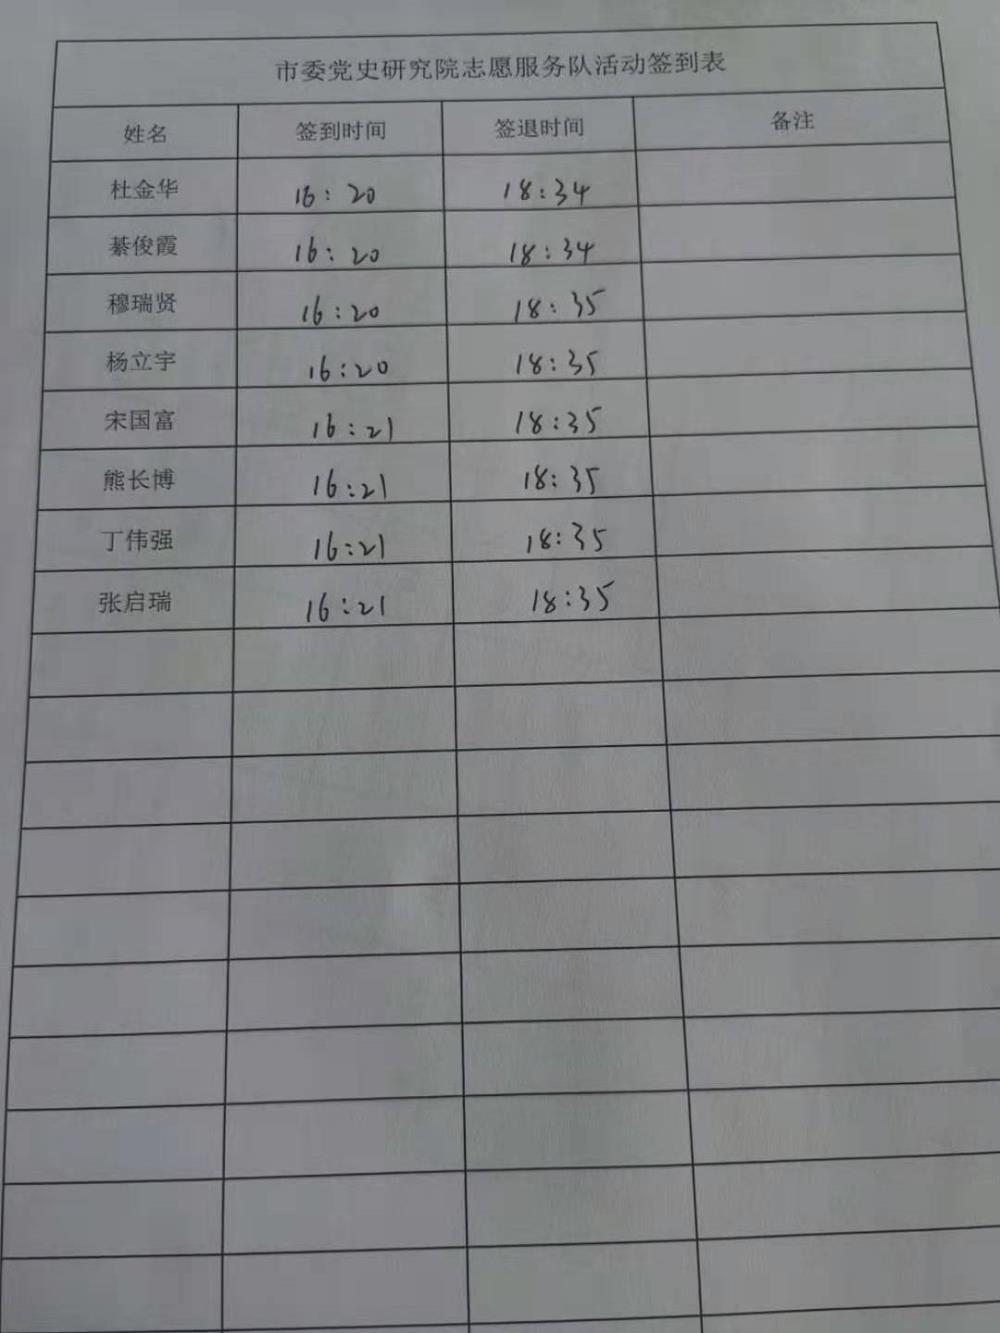 市委党史研究院志愿服务队活动签到表
姓名 签到时间 签退时间 备注
杜金华 16:20 18:34
綦俊霞 16:20 18:34
穆瑞贤 16:20 18:35
杨立宇 16:20 18:35
宋国富 16:21 18:35
熊长博 16:21 18:35
丁伟强 16:21 18:35
张启瑞 16:21 18:35